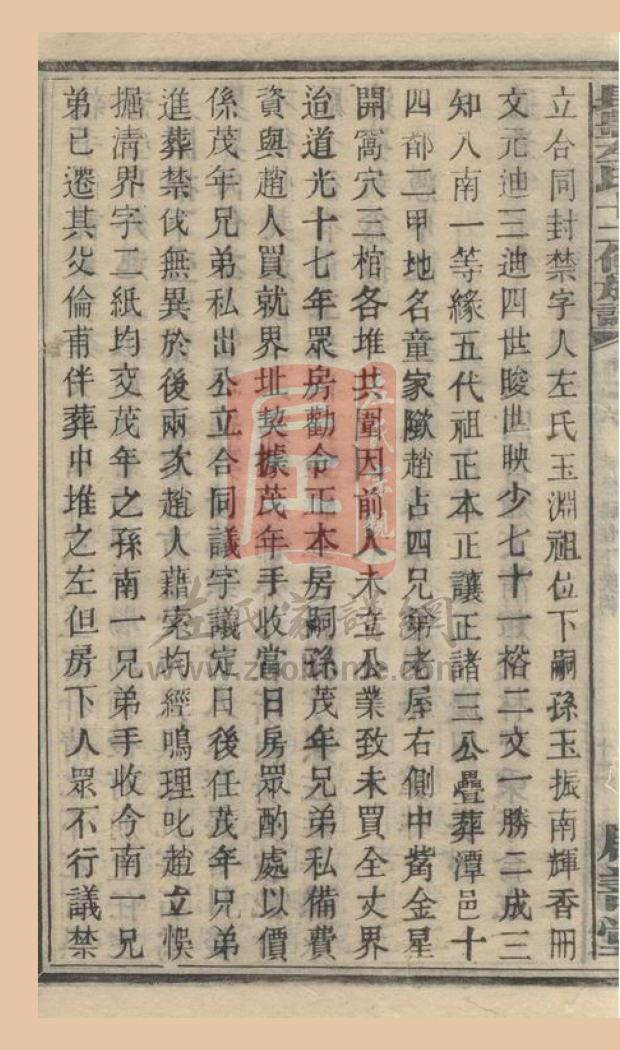 立合同封禁字人左氏玉淵祖位下嗣孫玉振南輝香冊
文元迪三迪四世晙世映少七十一裕二文一勝二成三
知八南一等緣五代祖正本正讓正諸三公疊葬潭邑十
四都二甲地名童家隞趙占四兄第老屋右側中觜金星
開窩穴三棺各堆共圍因前人未立公業致未買全丈界
迨道光十七年眾房勸令正本房嗣孫茂年兄弟私備費
資與趙人買就界址契據茂年手收當日房眾酌處以價
係茂年兄弟私出公立合同議字議定日後任茂年兄弟
進葬禁伐無異於後兩次趙人藉索均經鳴理叱趙立悞
掘清界字二紙均交茂年之孫南一兄弟手收今南一兄
弟已遷其父倫甫伴葬中堆之左但房下人眾不行議禁
左氏族譜網
www.zuohome.com